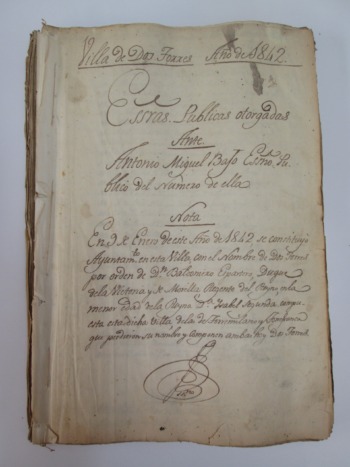 Villa de Dos Torres Año de 1842.
Essras. Publicas otorgadas
Ante
Antonio Miguel Essno. Pu-
blico del Numero de ella
Nota
En 9 de Enero de este Año de 1842 se constituyó
Ayuntamto. en esta Villa, con el Nombre de Dos Torres
por orden de Dn. Baldomero Espartero, Duque
de la Victoria y de Morella Regente del Reyno en la
menor edad de la Reyna Dª. Isabel Segunda
esta dicha Villa de las de Torremilano y
que perdieron su nombre y ambas hoy Dos Torres.